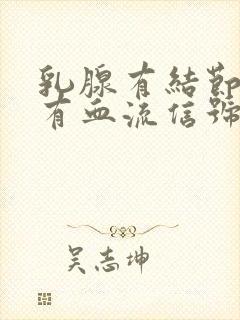 乳腺有結節
有血流信號
吴志坤